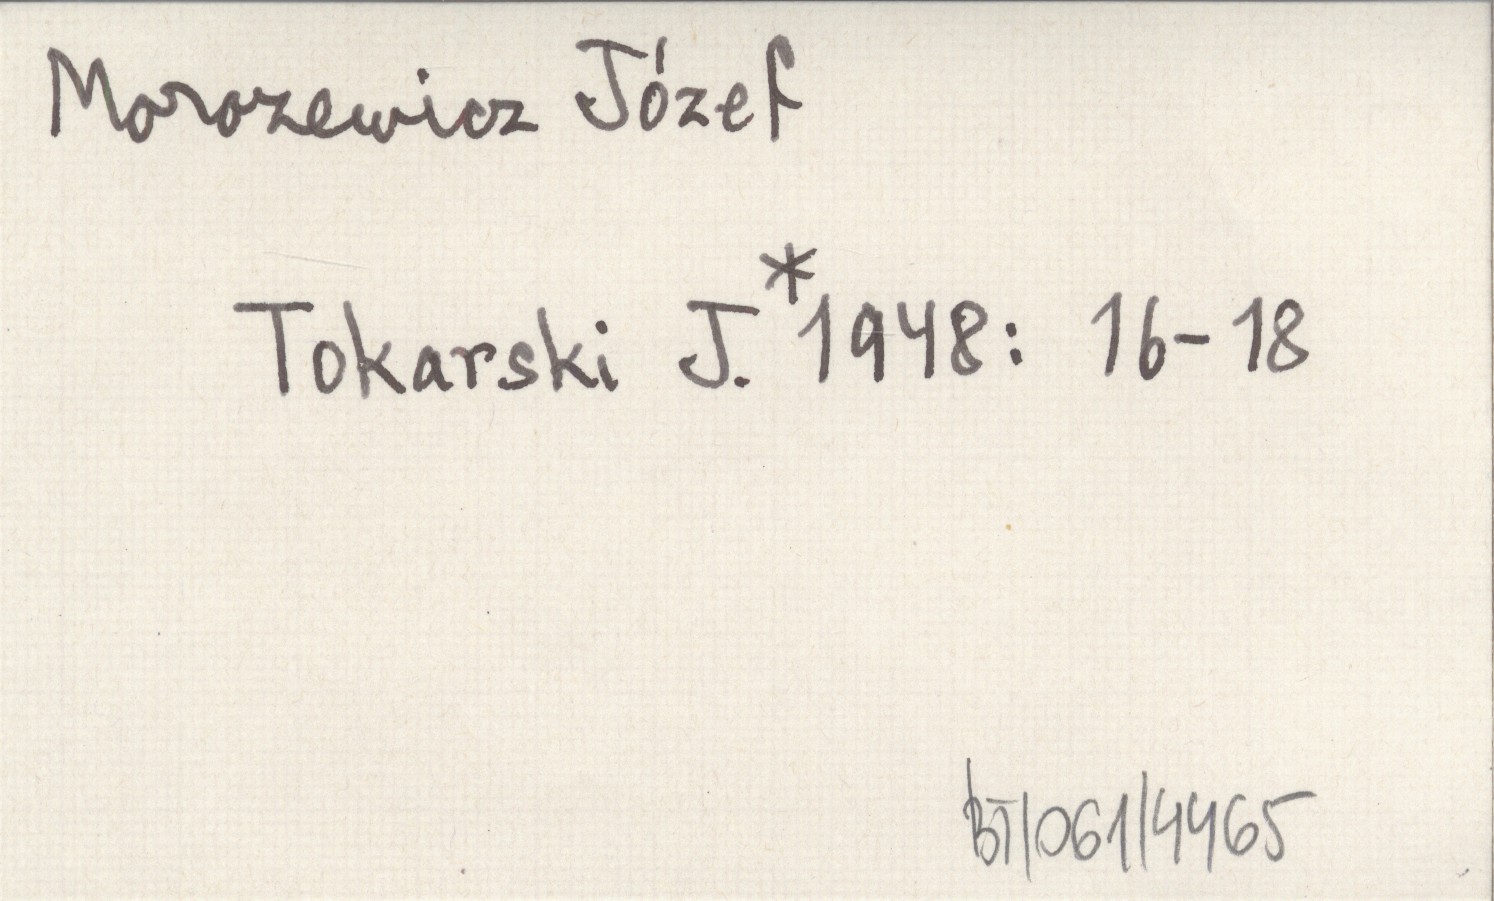 Morozewicz Józef
Tokarski J.*1948: 16-18
BT/061/4465